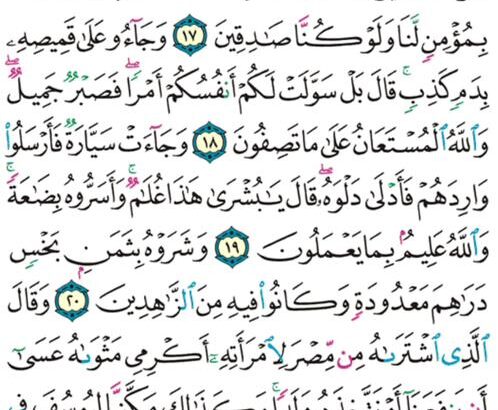 بِمُؤْمِنٍ لَّنَا وَلَوْ كُنَّا صَٰدِقِينَ ١٧ وَجَآءُو عَلَىٰ قَمِيصِهِۦ
بِدَمٍ كَذِبٍ ۚ قَالَ بَلْ سَوَّلَتْ لَكُمْ أَنفُسُكُمْ أَمْرًا ۖ فَصَبْرٌ جَمِيلٌ ۖ
وَٱللَّهُ ٱلْمُسْتَعَانُ عَلَىٰ مَا تَصِفُونَ ١٨ وَجَآءَتْ سَيَّارَةٌ فَأَرْسَلُوا۟
وَارِدَهُمْ فَأَدْلَىٰ دَلْوَهُۥ ۖ قَالَ يَٰبُشْرَىٰ هَٰذَا غُلَٰمٌ ۚ وَأَسَرُّوهُ بِضَٰعَةً ۚ
وَٱللَّهُ عَلِيمٌۢ بِمَا يَعْمَلُونَ ١٩ وَشَرَوْهُ بِثَمَنٍۭ بَخْسٍ
دَرَٰهِمَ مَعْدُودَةٍ وَكَانُوا۟ فِيهِ مِنَ ٱلزَّٰهِدِينَ ٢٠ وَقَالَ
ٱلَّذِى ٱشْتَرَىٰهُ مِن مِّصْرَ لِٱمْرَأَتِهِۦٓ أَكْرِمِى مَثْوَىٰهُ عَسَىٰٓ